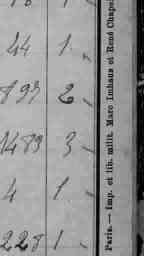 44 1.
893 2
1483 3
4 1
228 1
Paris. — Imp. et lib. milit. Marc Imhaus et René Chapel